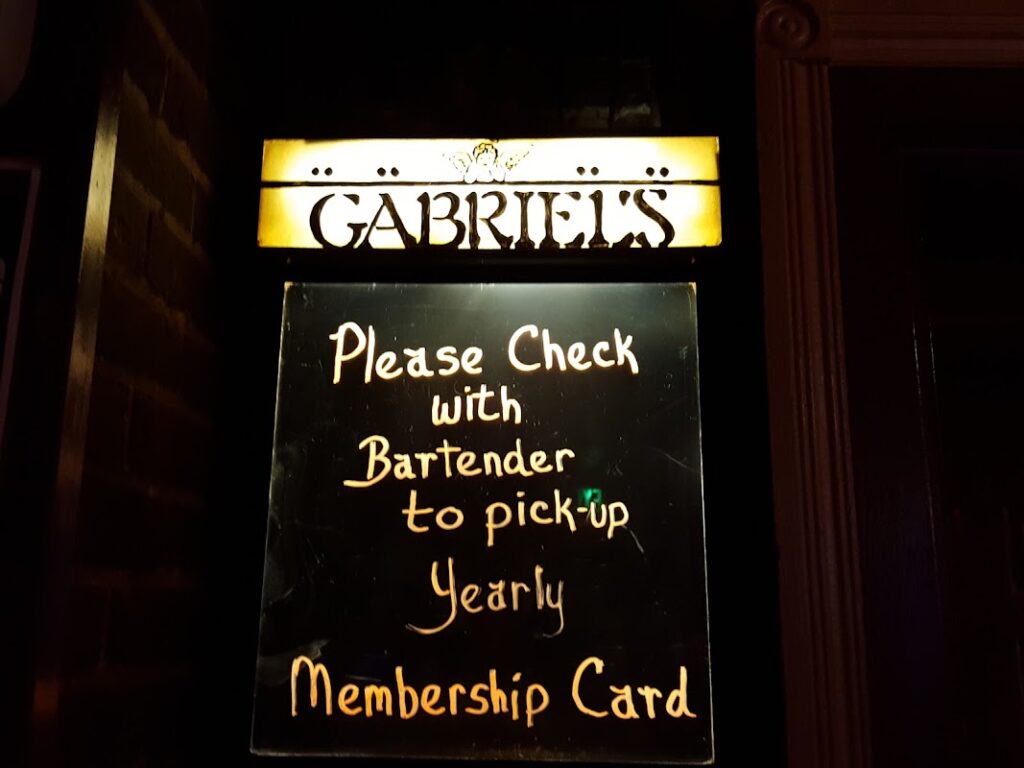 GABRIEL'S
Please Check
with
Bartender
to pick-up
Yearly
Membership Card